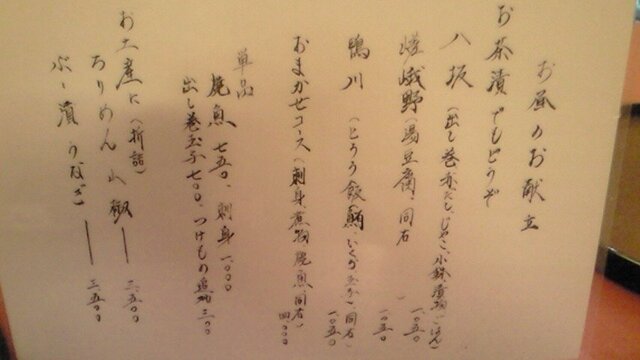 お昼のお献立
お茶漬でもどうぞ
八坂（出し巻、赤だし、じゃこ、小鉢、漬物、ごはん）
一〇五〇
嵯峨野（湯豆腐、同右）
一〇五〇
鴨川（とろろ飯、いくら、同右）
一〇五〇
おまかせコース（刺身、煮物、焼魚、同右）
四〇〇〇
単品
焼魚 七五〇、刺身 一〇〇〇
出し巻玉子 七〇〇、つけもの追加 三〇〇
お土産に（折詰）
ちりめん山椒 ― 三、五〇〇
ぶー漬うなぎ ― 三、五〇〇